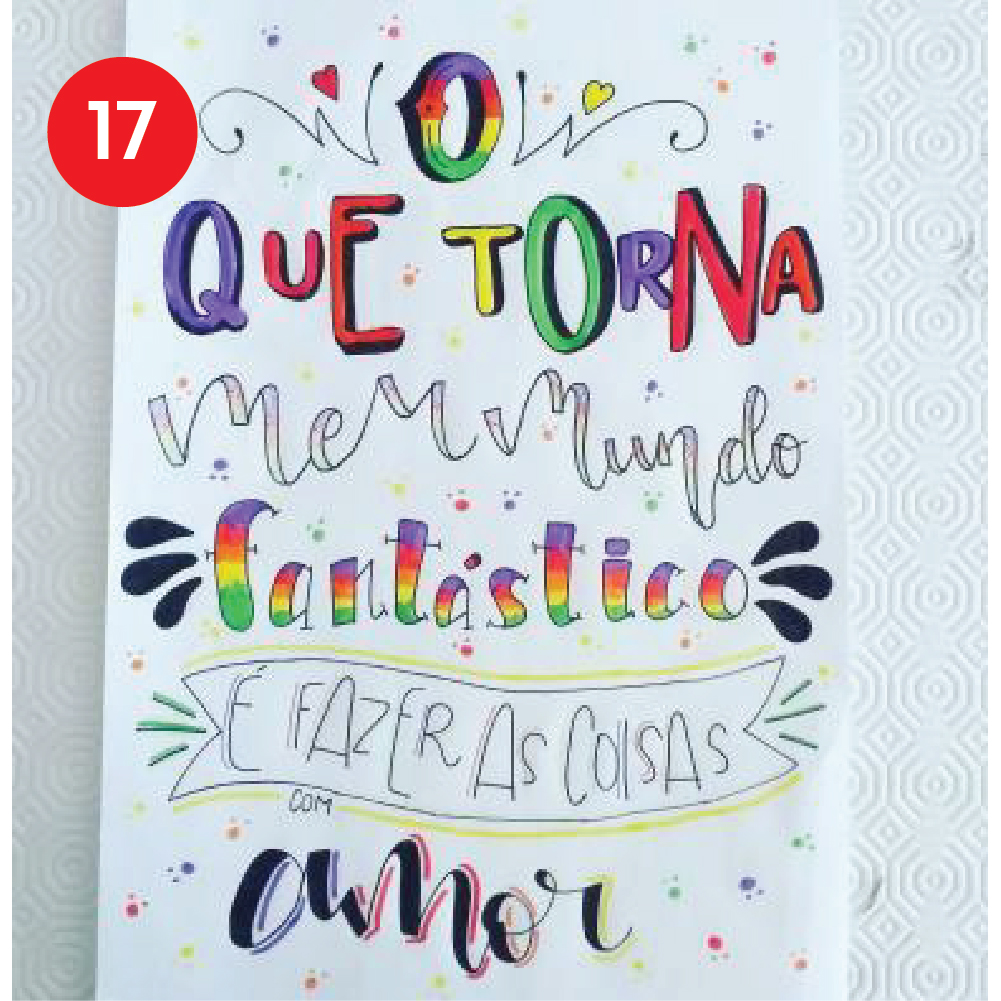 17
O
QUE TORNA
meu mundo
fantástico
É FAZER AS COISAS
COM
amor